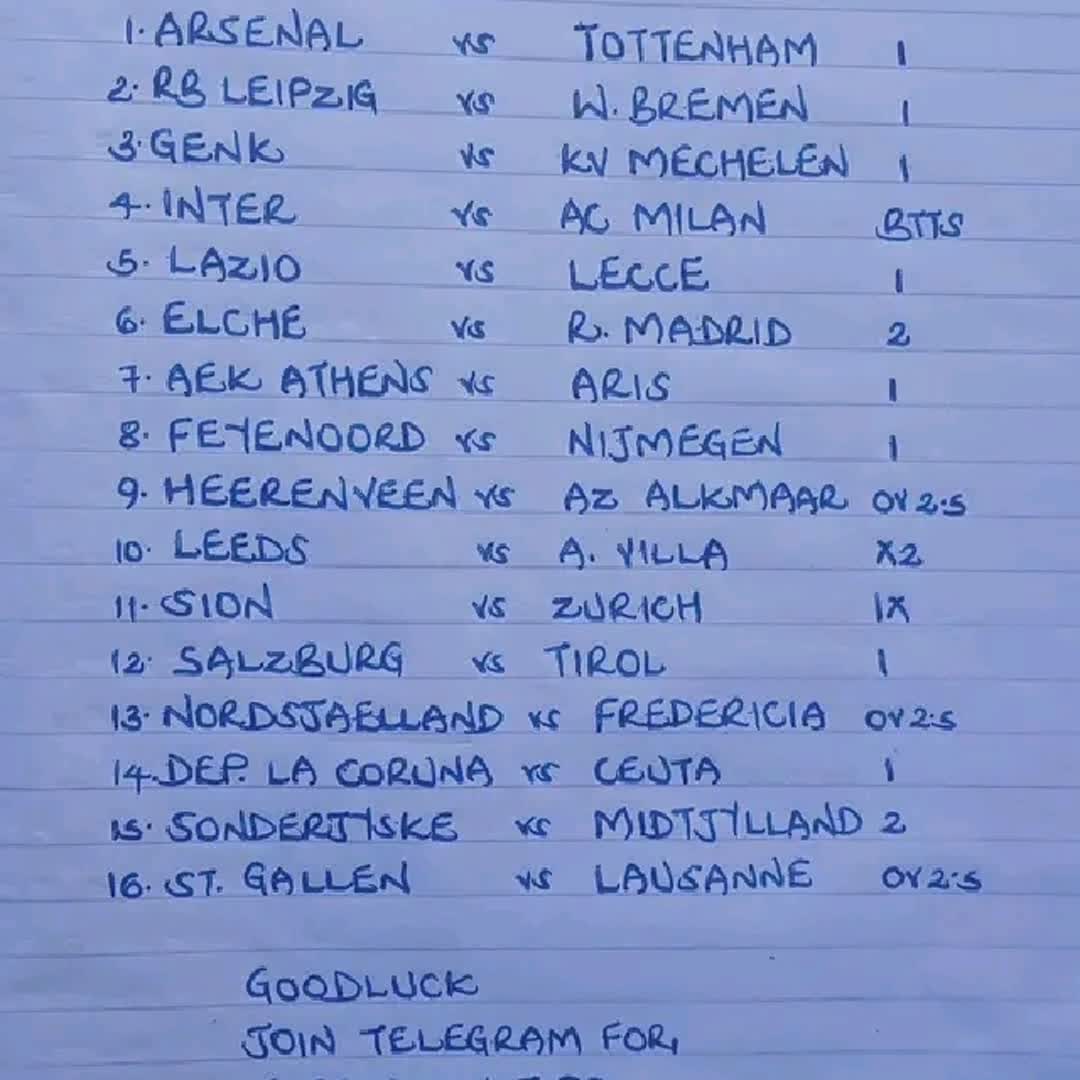 1. ARSENAL vs TOTTENHAM 1
2. RB LEIPZIG vs W. BREMEN 1
3. GENK vs KV MECHELEN 1
4. INTER vs AC MILAN BTTS
5. LAZIO vs LECCE 1
6. ELCHE vs R. MADRID 2
7. AEK ATHENS vs ARIS 1
8. FEYENOORD vs NIJMEGEN 1
9. HEERENVEEN vs AZ ALKMAAR OV 2.5
10. LEEDS vs A. VILLA X2
11. SION vs ZURICH 1X
12. SALZBURG vs TIROL 1
13. NORDSJAELLAND vs FREDERICIA OV 2.5
14. DEP. LA CORUNA vs CEUTA 1
15. SONDERJYSKE vs MIDTJYLLAND 2
16. ST. GALLEN vs LAUSANNE OV 2.5
GOODLUCK
JOIN TELEGRAM FOR